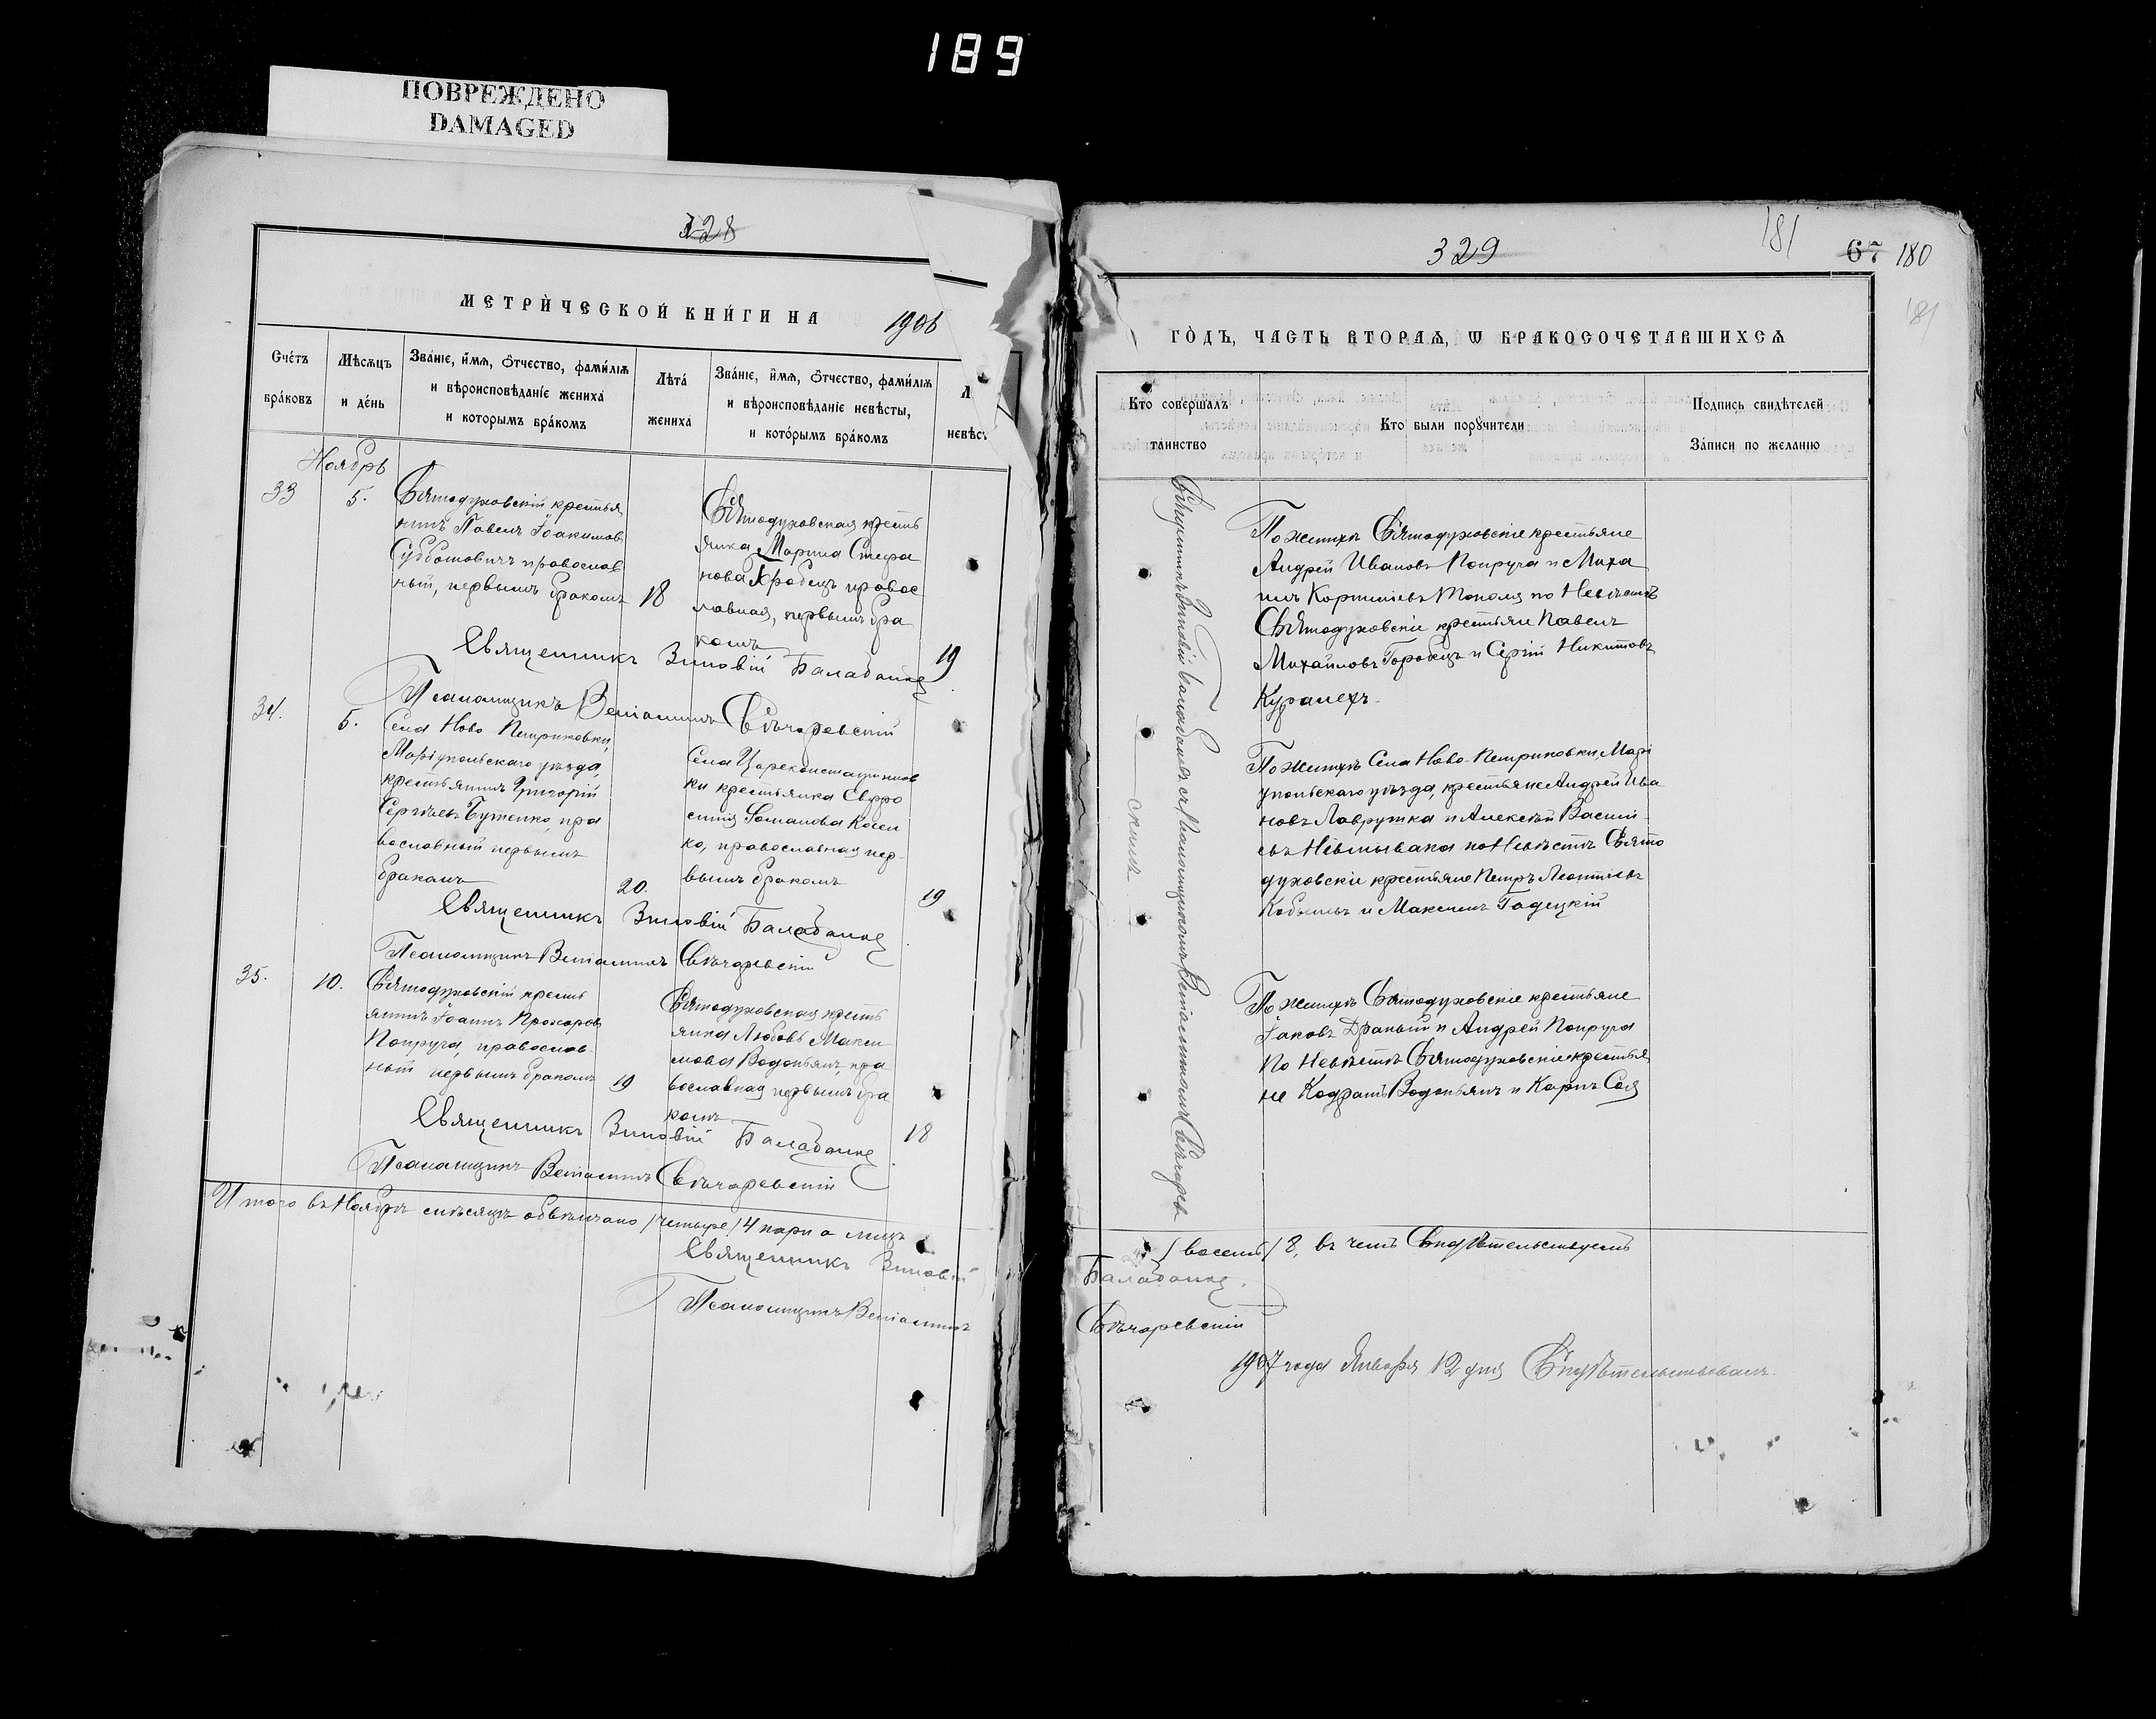 189
ПОВРЕЖДЕНО
DAMAGED
328
МЕТРИЧЕСКОЙ КНИГИ НА 1906
Счетъ браковъ
Мѣсяцъ и день
Званіе, имя, отчество, фамилія и вѣроисповѣданіе жениха и которымъ бракомъ
Лѣта жениха
Званіе, имя, отчество, фамилія и вѣроисповѣданіе невѣсты, и которымъ бракомъ
Л невѣс
Ноябрь
33
5.
Святодуховскій крестья
нинъ Павелъ Іоакимовъ
Субботовичъ православ
ный, первымъ бракомъ
18
Святодуховская кресть
янка Марина Стефа
нова Хробецъ правос
лавная, первымъ бра
комъ
19
Священникъ Зиновій Балабаненко
Псаломщикъ Веніаминъ Свѣчаревскій
34.
5.
Села Ново Петриковки,
Маріупольскаго уѣзда,
крестьянинъ Григорій
Сергѣевъ Бутенко, пра
вославный первымъ
бракомъ
20.
Села Цареконстантинов
ки крестьянка Евфро
синія Романова Косен
ко, православная пер
вымъ бракомъ
19
Священникъ Зиновій
Псаломщикъ Веніаминъ Свѣчаревскій
35.
10.
Святодуховскій кресть
янинъ Іоаннъ Прохоровъ
Попруга, православ
ный первымъ бракомъ
19
Святодуховская кресть
янка Любовь Макси
мова Водопьянъ, пра
вославная первымъ бра
комъ
18
Священникъ Зиновій
Псаломщикъ Веніаминъ Свѣчаревскій
Итого въ Ноябрѣ мѣсяцѣ обвѣнчано /четыре/ 4 пары а лицъ
Священникъ Зиновій
Псаломщикъ Веніаминъ
329
181
67 180
181
ГОДЪ, ЧАСТЬ ВТОРАЯ, Ѡ БРАКОСОЧЕТАВШИХСЯ
Кто совершалъ таинство
Кто были поручители
Подпись свидѣтелей записи по желанію
Священникъ Зиновій съ Псаломщикомъ Веніаминомъ Свѣчарев
скимъ
По женихѣ Святодуховскіе крестьяне
Андрей Ивановъ Попруга и Миха
илъ Корниліевъ Тополя по Невѣстѣ
Святодуховскіе крестьяне Павелъ
Михайловъ Горобецъ и Сергій Никитовъ
По женихѣ Села Ново-Петриковки, Марі
упольскаго уѣзда, крестьяне Андрей Ива
новъ Лаврушка и Алексѣй Василі
евъ по Невѣстѣ Свято
духовскіе крестьяне Петръ Леонтіевъ
Кобылевъ и Максимъ Гадецкій
По женихѣ Святодуховскіе крестьяне
Іаковъ Драный и Андрей Попруга
По Невѣстѣ Святодуховскіе крестья
не Кодратъ Водопьянъ и Карпъ Соля
/восемь/ 8, въ чемъ Свидѣтельствуемъ
Свѣчаревскій
1907 года Января 12 дня Свидѣтельствовалъ.